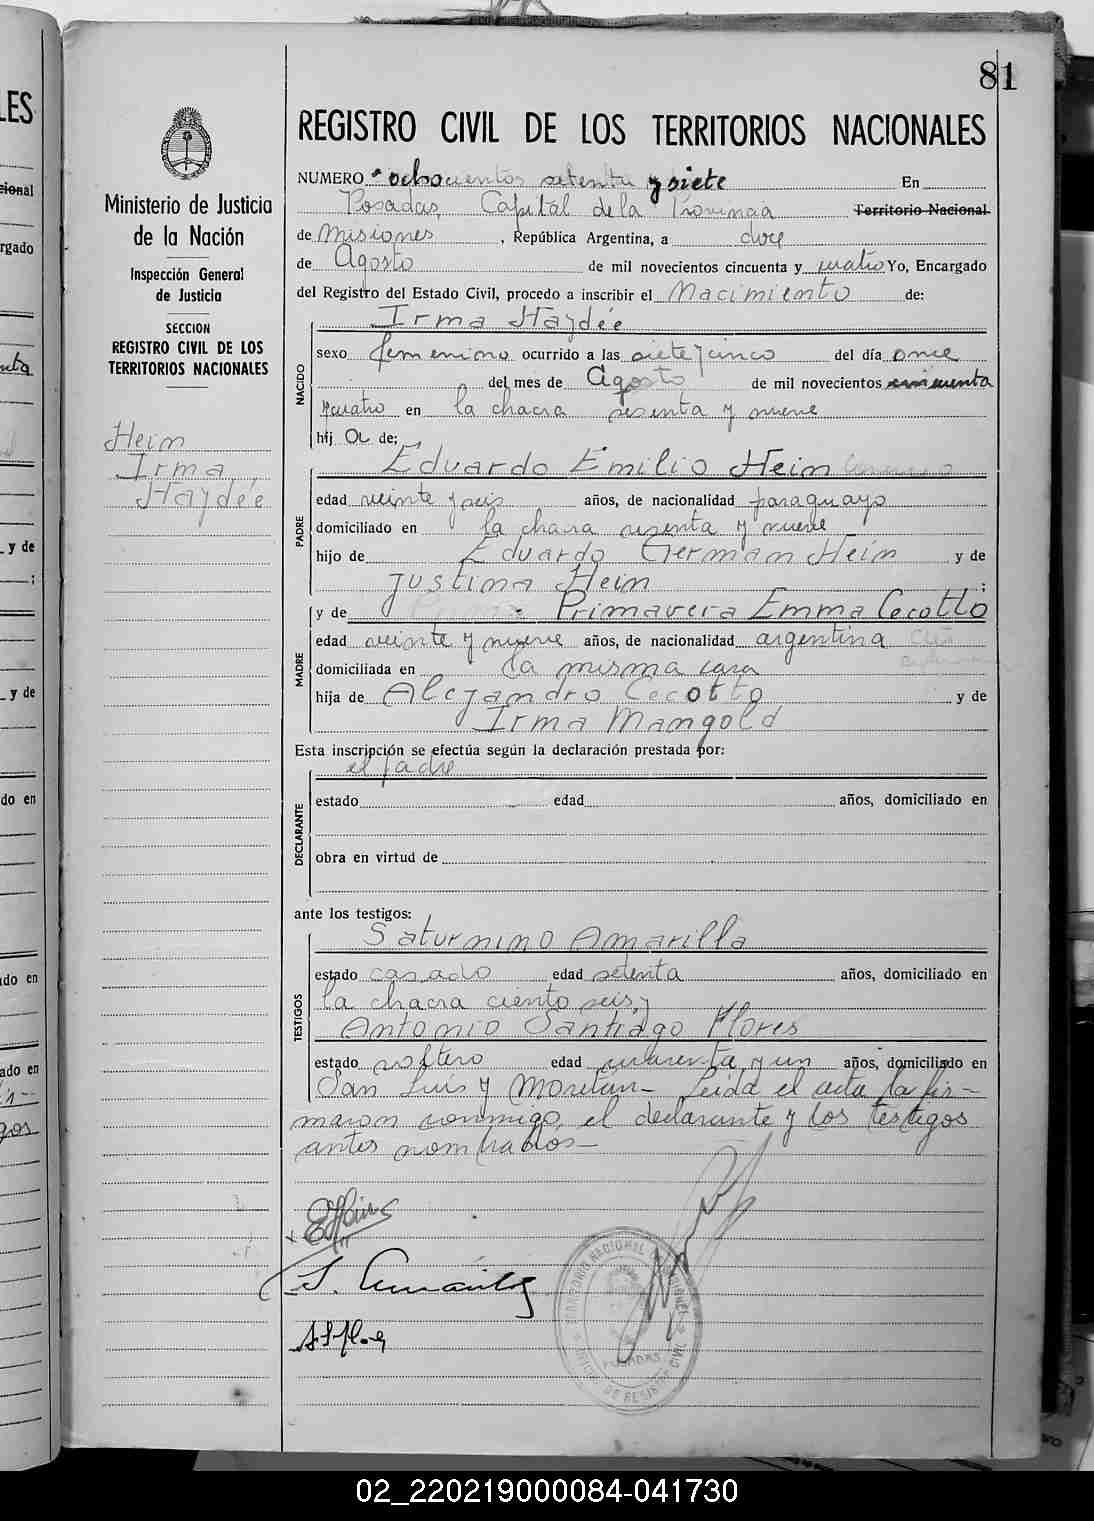 81
REGISTRO CIVIL DE LOS TERRITORIOS NACIONALES
Ministerio de Justicia
de la Nación
Inspección General
de Justicia
SECCION
REGISTRO CIVIL DE LOS
TERRITORIOS NACIONALES
Heim
Irma
Haydée
NUMERO ochocientos setenta y siete En
Posadas, Capital de la Provincia Territorio Nacional
de Misiones, República Argentina, a doce
de Agosto de mil novecientos cincuenta y cuatro Yo, Encargado
del Registro del Estado Civil, procedo a inscribir el Nacimiento de:
NACIDO
Irma Haydée
sexo femenino ocurrido a las siete y cinco del día once
del mes de Agosto de mil novecientos cincuenta
y cuatro en la chacra sesenta y nueve
hij a de:
PADRE
Eduardo Emilio Hein
edad veinte y seis años, de nacionalidad paraguayo
domiciliado en la chacra sesenta y nueve
hijo de Eduardo German Hein y de
Justina Hein ;
MADRE
y de Primavera Emma Cecotto
edad veinte y nueve años, de nacionalidad argentina
domiciliada en la misma casa
hija de Alejandro Cecotto y de
Irma Mangold
Esta inscripción se efectúa según la declaración prestada por:
el padre
DECLARANTE
estado edad años, domiciliado en
obra en virtud de
ante los testigos:
TESTIGOS
Saturnino Amarilla
estado casado edad setenta años, domiciliado en
la chacra ciento seis y
Antonio Santiago Flores
estado soltero edad cuarenta y un años, domiciliado en
San Luis y Moretán - Leida el acta la fir-
maron conmigo, el declarante y los testigos
antes nombrados -
EHein
S. Amarilla
POSADAS
02_220219000084-041730